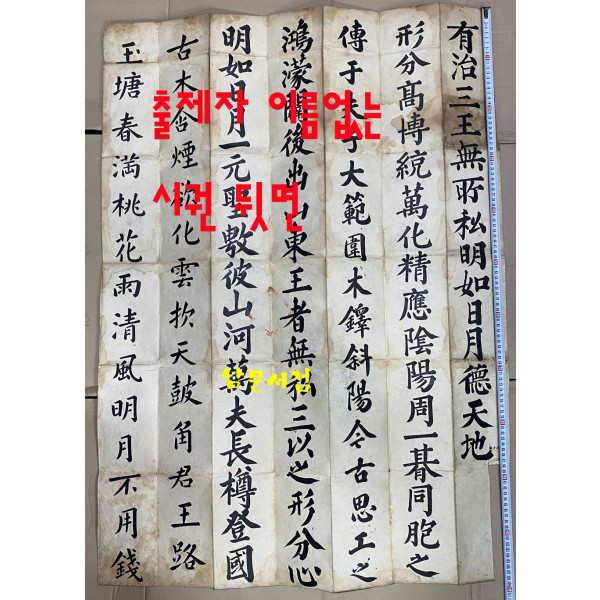 有治三王無所私明如日月德天地
形分高博統萬化精應陰陽周一朞同胞之
傳于夫子大範圍木鐸斜陽今古思工之
鴻濛闢後出山東王者無私三以之形分心
明如日月一元聖敷彼山河萬夫長樽登國
古木含煙欲化雲扻天鼓角君王路
玉塘春満桃花雨清風明月不用錢
출제자 이름없는
시권 뒷면
남문서점